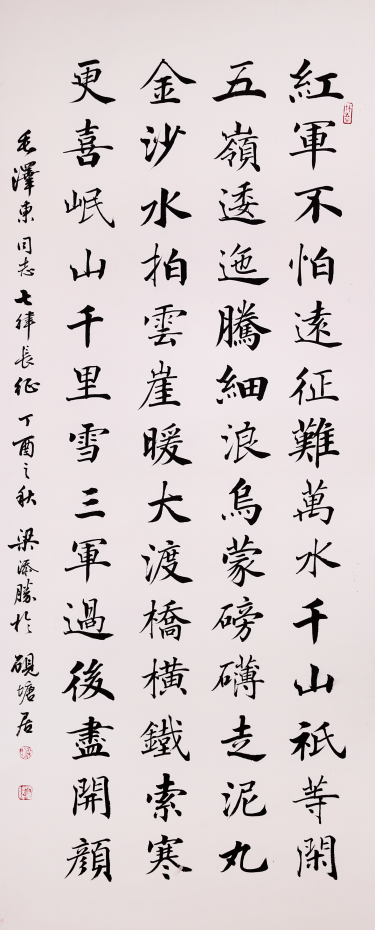 紅軍不怕遠征難萬水千山祇等閑
五嶺逶迤騰細浪烏蒙磅礴走泥丸
金沙水拍雲崖暖大渡橋橫鐵索寒
更喜岷山千里雪三軍過後盡開顔
毛澤東同志七律長征丁酉之秋梁添勝於硯塘居